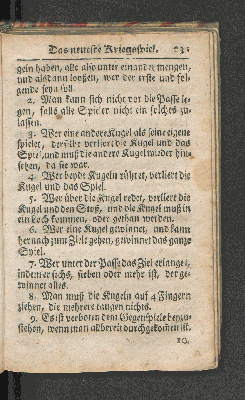 Das neueste Kriegsspiel. 231
geln haben, alle also unter einander mengen,
und alsdann loosen, wer der erste und fol-
gende seyn soll.
2. Man kann sich nicht vor die Passe le-
gen, falls alle Spieler nicht ein solches zu-
lassen.
3. Wer eine andere Kugel als seine eigene
spielet, derselbe verliert die Kugel und das
Spiel, und muß die andere Kugel wieder hin-
setzen, da sie war.
4. Wer beyde Kugeln rühret, verliert die
Kugel und das Spiel.
5. Wer über die Kugel redet, verliert die
Kugel und den Stoß, und die Kugel muß in
ein Loch kommen, oder gethan werden.
6. Wer eine Kugel gewinnet, und kann
hernach zum Ziele gehen, gewinnet das ganze
Spiel.
7. Wer unter der Passe das Ziel erlanget,
indem er sechs, sieben oder mehr ist, der ge-
winnet alles.
8. Man muß die Kugeln auf 4 Fingern
ziehen, die mehrere taugen nichts.
9. Es ist verboten dem Gegenspiele beyzu-
stehen, wenn man allbereit durchgekommen ist.
10.